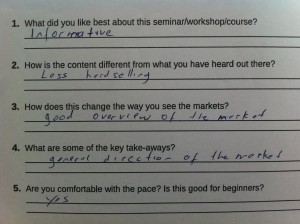 1. What did you like best about this seminar/workshop/course?
Informative
2. How is the content different from what you have heard out there?
Less hardselling
3. How does this change the way you see the markets?
good overview of the market
4. What are some of the key take-aways?
general direction of the market
5. Are you comfortable with the pace? Is this good for beginners?
yes